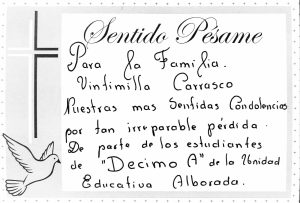 Sentido Pésame
Para la Familia.
Vintimilla Carrasco
Nuestras mas Sentidas Condolencias
por tan irreparable pérdida.
De parte de los estudiantes
de "Decimo A" de la Unidad
Educativa Alborada.